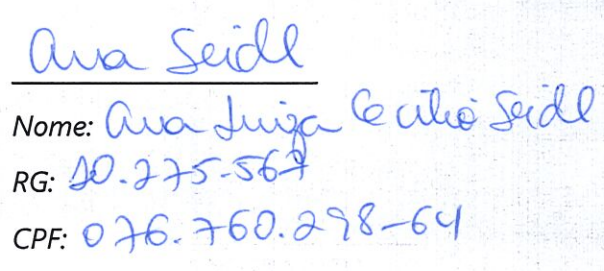 Ana Seidl
Nome: Ana Luiza Cecilio Seidl
RG: 10.275.567
CPF: 076.760.298-64